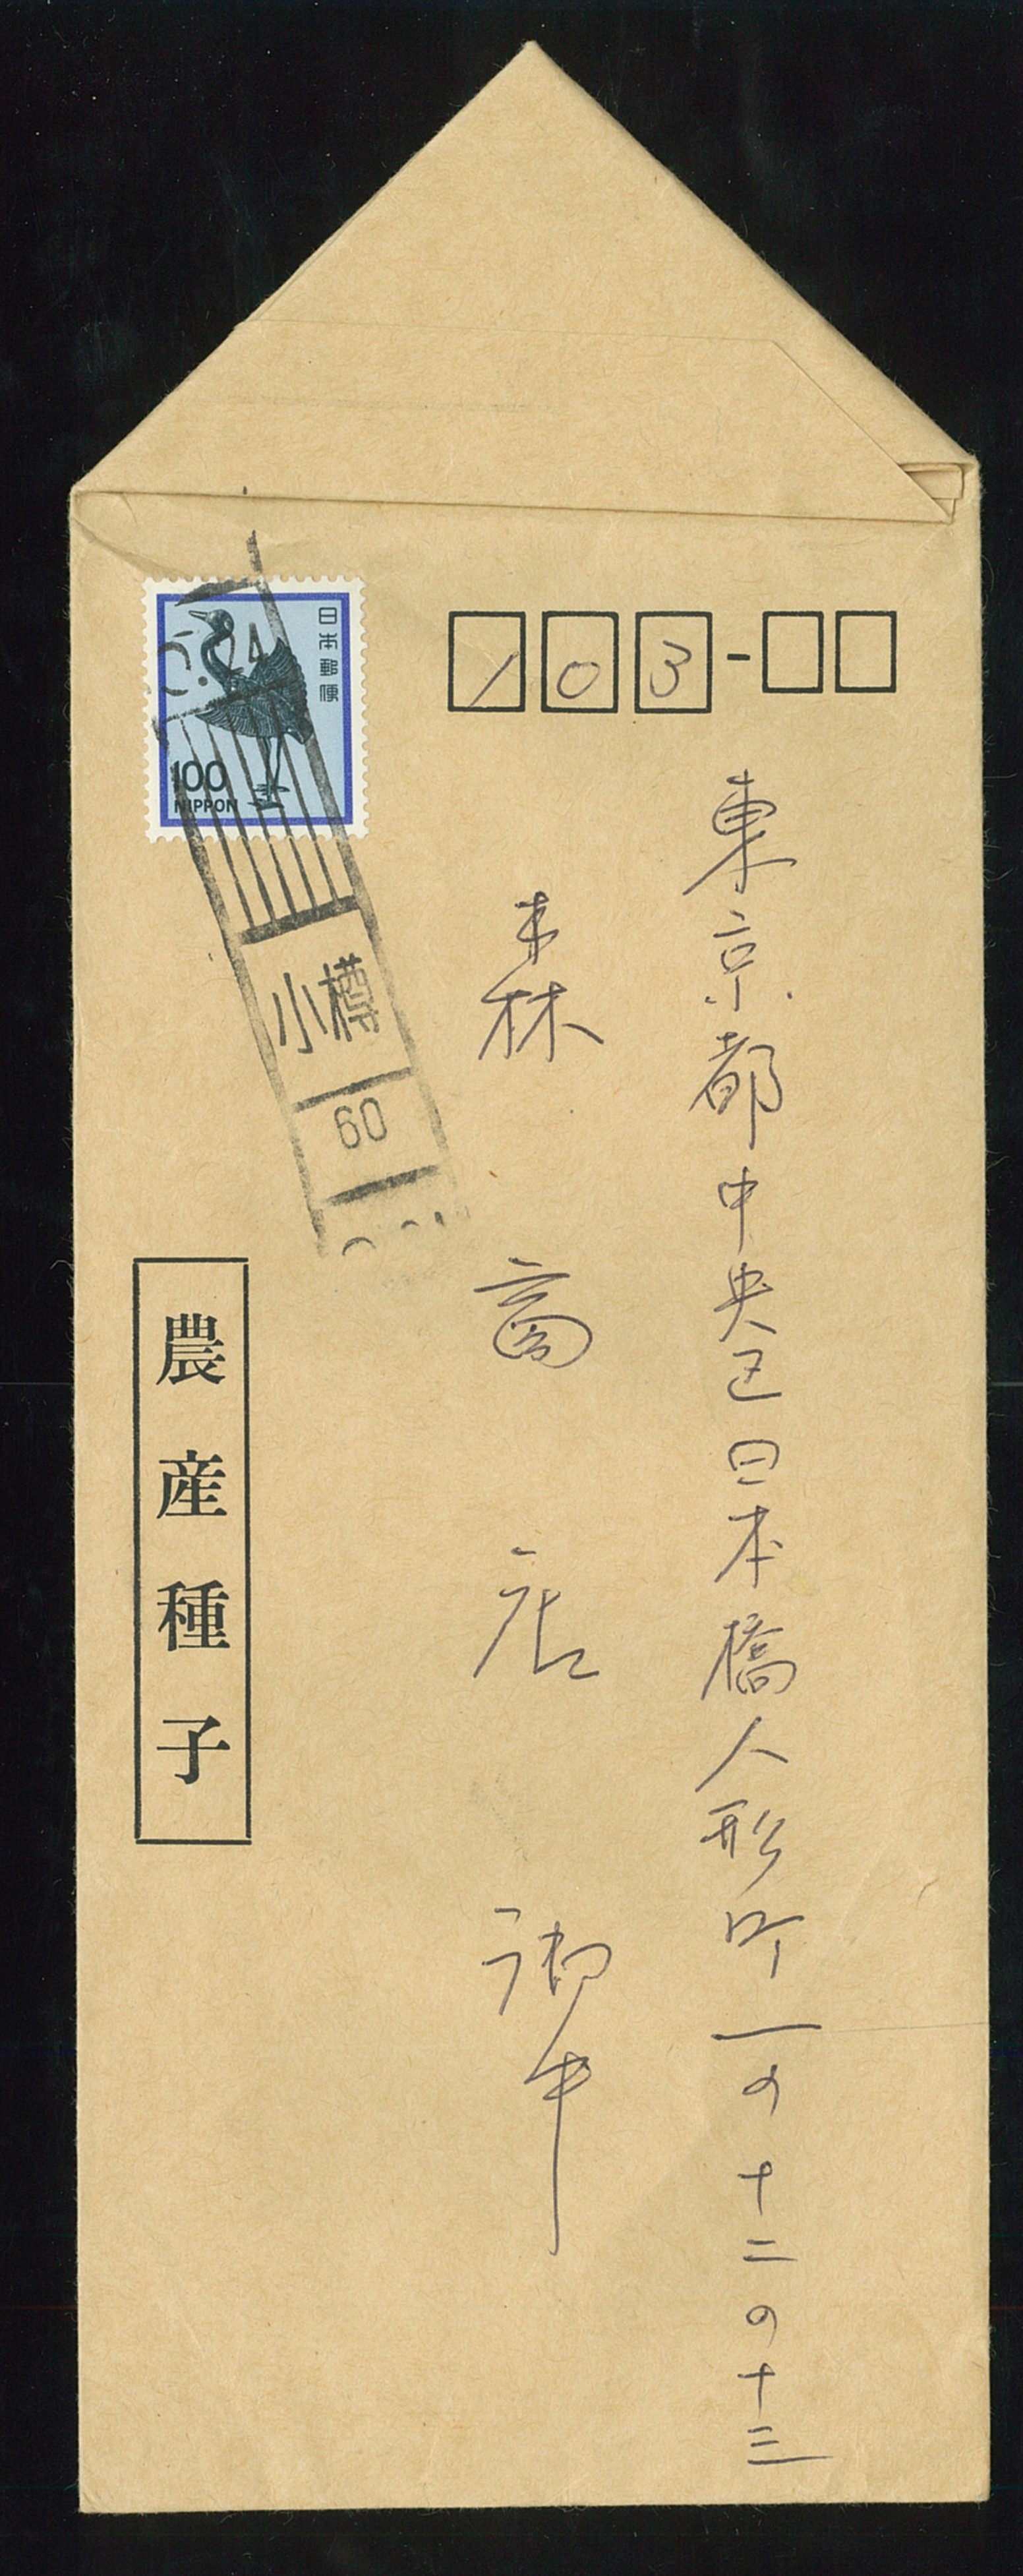 日本郵便
100
NIPPON
103
東京都中央区日本橋人形町一の十二の十三
森商店御中
小樽
60
農産種子